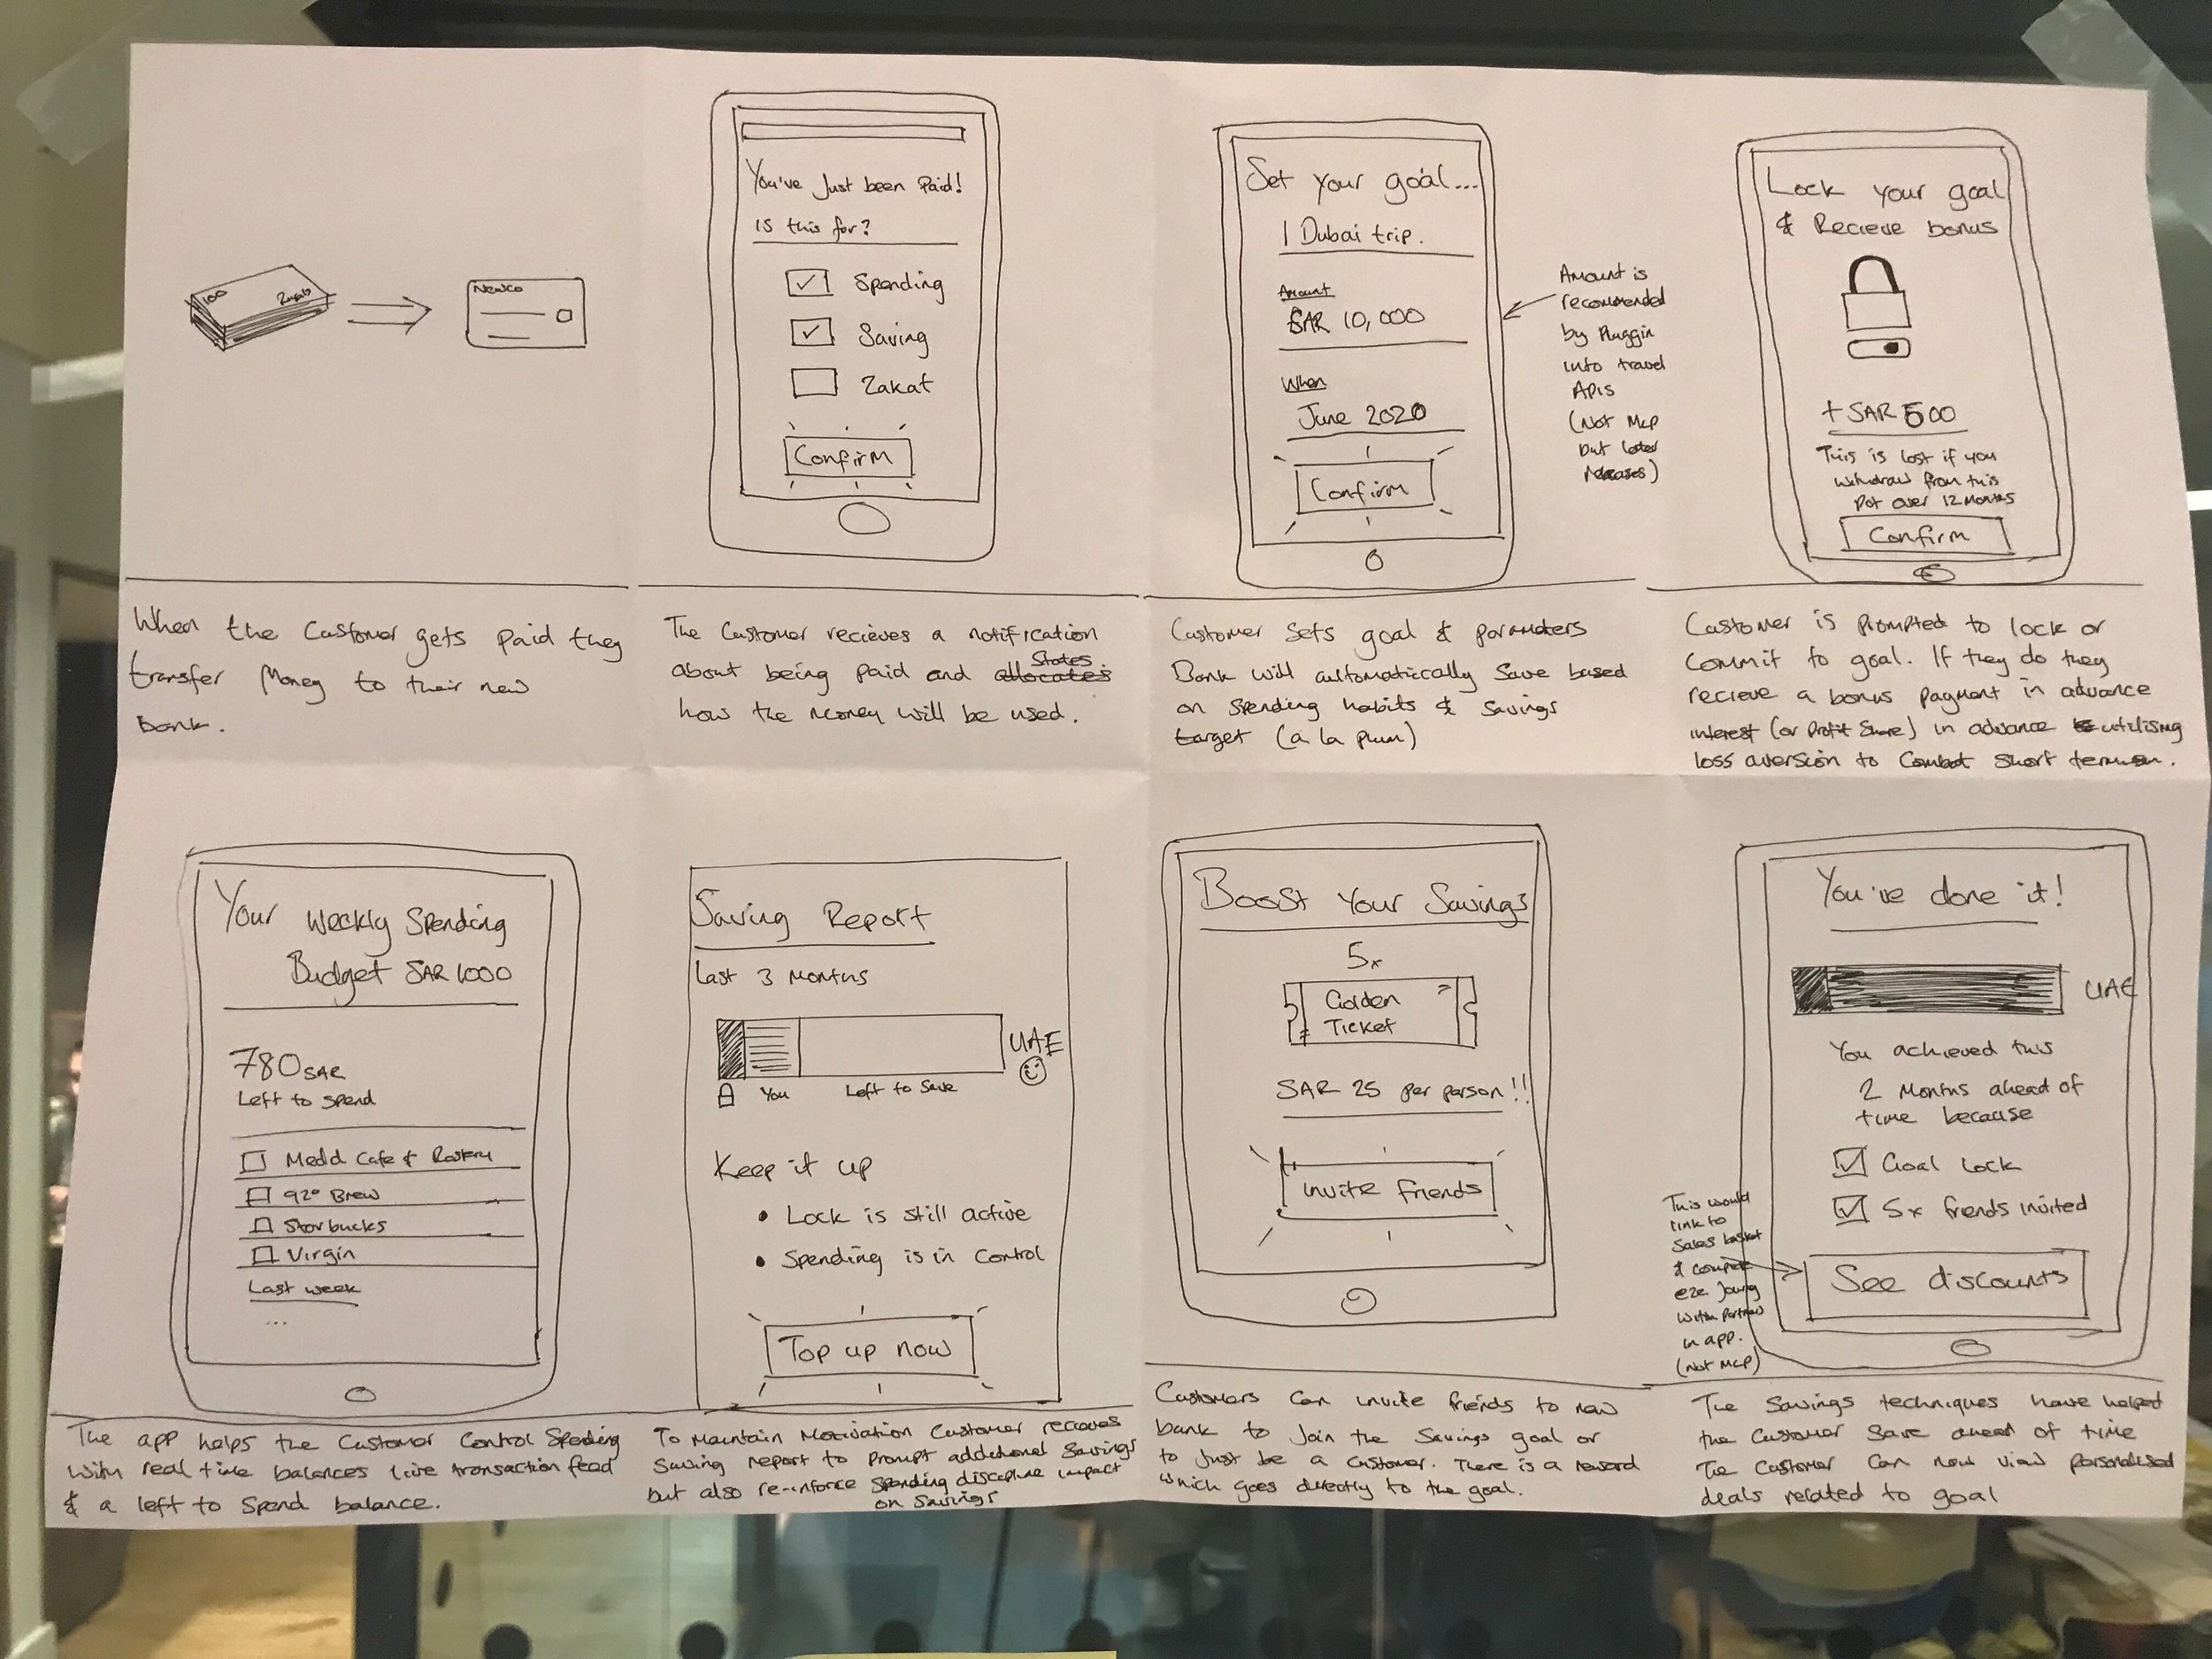 100
Newco
When the Customer gets paid they
transfer Money to their new
bank.
You've Just been Paid!
is this for?
Spending
Saving
Zakat
Confirm
The Customer recieves a notification
about being paid and allocates States
how the money will be used.
Set your goal...
1 Dubai trip.
Amount
SAR 10,000
When
June 2020
Confirm
Amount is
recommended
by Pluggin
into travel
APIs
(Not MCP
but later
releases)
Customer sets goal & parameters
Bank will automatically Save based
on spending habits & savings
target (a la plum)
Lock your goal
& Recieve bonus
+ SAR 500
This is lost if you
withdraw from this
Pot over 12 Months
Confirm
Customer is prompted to lock or
commit to goal. If they do they
recieve a bonus payment in advance
interest (or Profit Share) in advance utilising
loss aversion to Combat short
Your Weekly Spending
Budget SAR 1000
780 SAR
Left to spend
Medd Cafe &
92° Brew
Starbucks
Virgin
Last week
...
The app helps the Customer Control Spending
with real time balances live transaction feed
& a left to Spend balance.
Saving Report
Last 3 Months
UAE
You
Left to Save
Keep it up
• Lock is still active
• Spending is in Control
Top up now
To Maintain Motivation Customer recieves
Saving report to prompt additional Savings
but also re-inforce spending discipline impact
on Savings
Boost Your Savings
5x
Golden
Ticket
SAR 25 per person!!
Invite friends
Customers can invite friends to new
bank to Join the Savings goal or
to just be a customer. There is a reward
which goes directly to the goal.
You've done it!
UAE
You achieved this
2 Months ahead of
time because
Goal Lock
5x friends invited
See discounts
This would
link to
Sales basket
&
e2e
with Partner
in app.
(Not MCP)
The Savings techniques have helped
the Customer Save ahead of time
The Customer Can now view personalised
deals related to goal